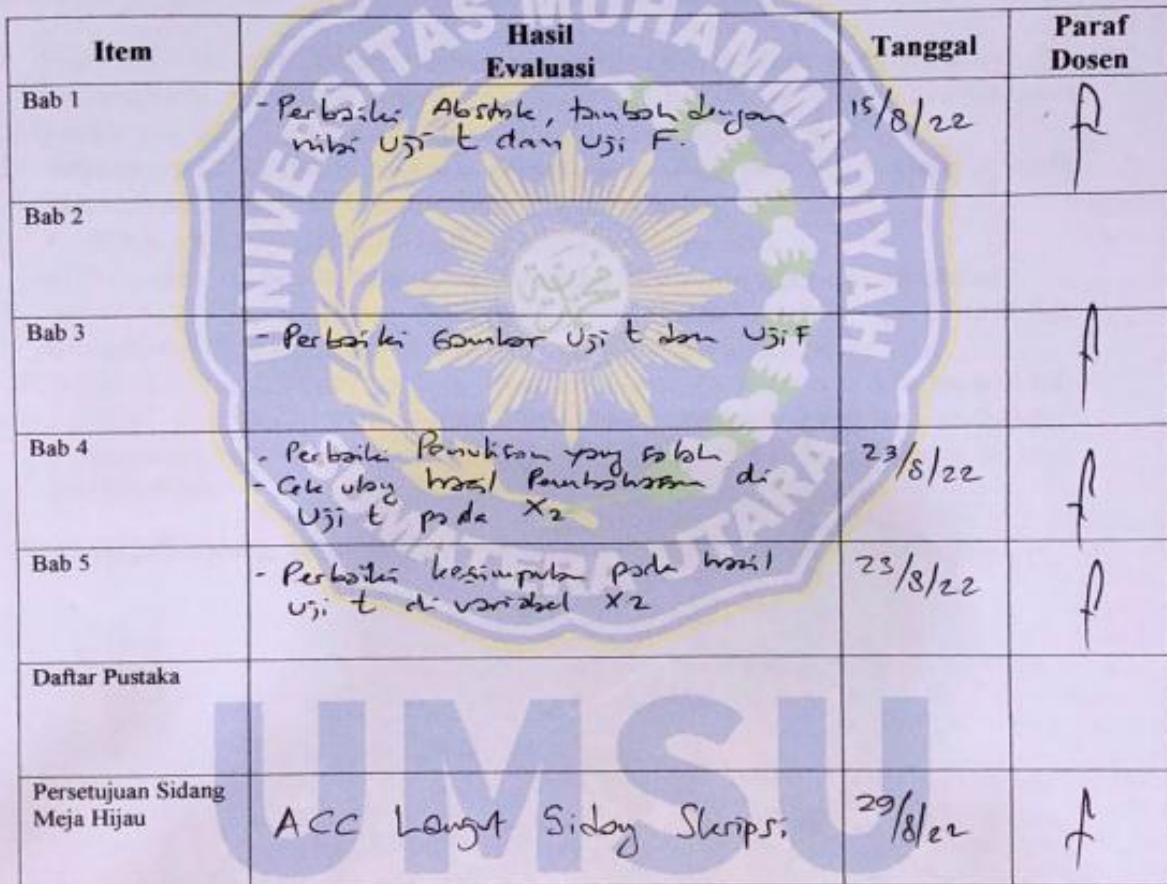 Item
Hasil
Evaluasi
Tanggal
Paraf
Dosen
Bab 1
- Perbaiki Abstrak, tambah dengan
nilai Uji t dan Uji F.
15/8/22
Bab 2
Bab 3
- Perbaiki Gambar Uji t dan Uji F
Bab 4
- Perbaiki Penulisan yang salah
- Cek ulang hasil Pembahasan di
Uji t pada X2
23/8/22
Bab 5
- Perbaiki kesimpulan pada hasil
Uji t di variabel X2
23/8/22
Daftar Pustaka
Persetujuan Sidang
Meja Hijau
ACC Lanjut Sidang Skripsi
29/8/22
UNIVERSITAS MUHAMMADIYAH
SUMATERA UTARA
UMSU